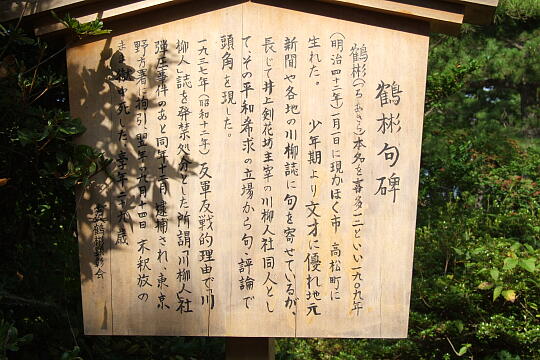 鶴彬句碑
鶴彬(つるあきら)本名を喜多一二といい一九〇九年
(明治四十二年)一月一日に現かほく市 高松町に
生れた。 少年期より文才に優れ地元
新聞や各地の川柳誌に句を寄せているが、
長じて井上剣花坊主宰の川柳人社同人とし
て、その平和希求の立場から句、評論で
頭角を現した。
一九三七年(昭和十二年)反軍反戦的理由で「川
柳人」誌を発禁処分とした所謂「川柳人」社
弾圧事件のあと同年十二月 逮捕され、東京
野方署に拘引、翌年の九月十四日 未釈放の
まま獄中死した。享年二十九歳
鶴彬顕彰会